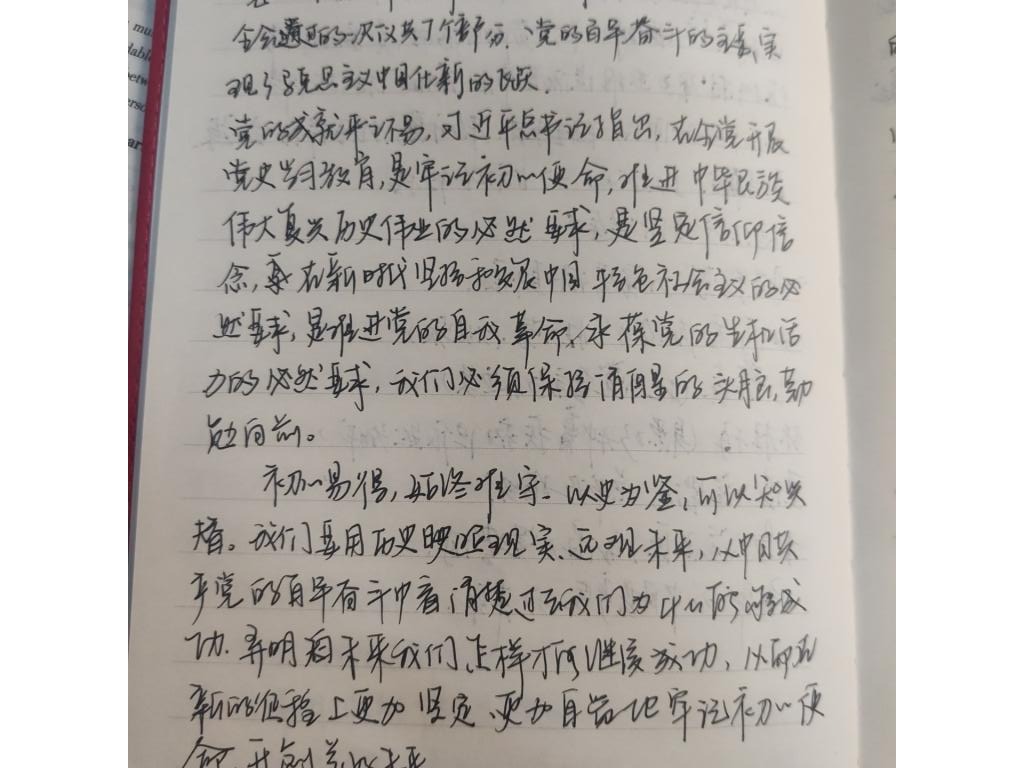 全会通过的决议共7个部分、党的百年奋斗的主要、实
现了马克思主义中国化新的飞跃.
党的成就平访易,习近平总书记指出,在全党开展
党史学习教育,是牢记初心使命,推进中华民族
伟大复兴历史伟业的必然要求,是坚定信仰信
念,要在新时代坚持和发展中国特色社会主义的必
然要求,是推进党的自我革命、永葆党的生机活
力的必然要求,我们必须保持清醒的头脑,勤
勉向前。
初心易得,始终难守.以史为鉴,可以知兴
替。我们要用历史映照现实、远观未来,从中国共
产党的百年奋斗中看清楚过去我们为什么能够成
功.弄明白未来我们怎样才能继续成功、从而在
新的征程上更加坚定、更加自觉地牢记初心使
命、开创美好未来
mus
dable
betwe
erson
ar